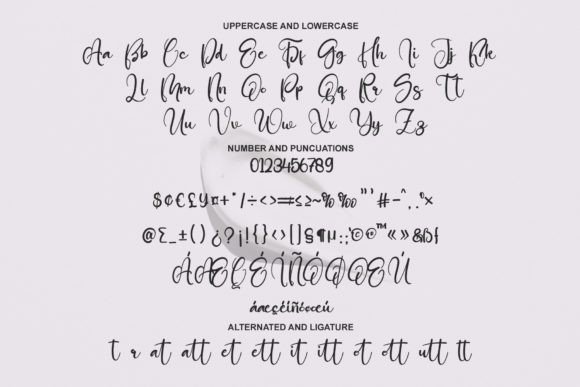 UPPERCASE AND LOWERCASE
Aa Bb Cc Dd Ee Ff Gg Hh Ii Jj Kk
Ll Mm Nn Oo Pp Qq Rr Ss Tt
Uu Vv Ww Xx Yy Zz
NUMBER AND PUNCUATIONS
0123456789
$¢€£¥¤+*/÷<>=≤≥~%‰"'#-^.,"×
@Σ_±()¿?¡!{}‹›[]§¶µ:;©®™«»&ßƒ
ÁÆÇÉÍÑÓØŒÚ
áæçéíñóøœú
ALTERNATED AND LIGATURE
t r at att et ett it itt ot ott utt tt